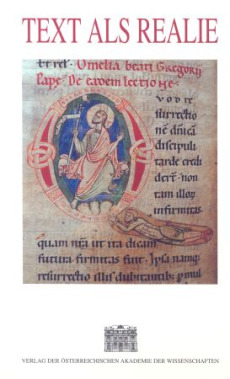 TEXT ALS REALIE
et rel. Omelia beati Gregorij
Pape. De eadem lectione.
vod re
surrectio
nē dñicā
discipuli
tarde credi
derē non
tam illoꝝ
infirmitas
quam nr̄a ut ita dicam
futura firmitas fuit. Ipsa namqꝫ
resurrectio illis dubitantibꝰ p mul
VERLAG DER ÖSTERREICHISCHEN AKADEMIE DER WISSENSCHAFTEN